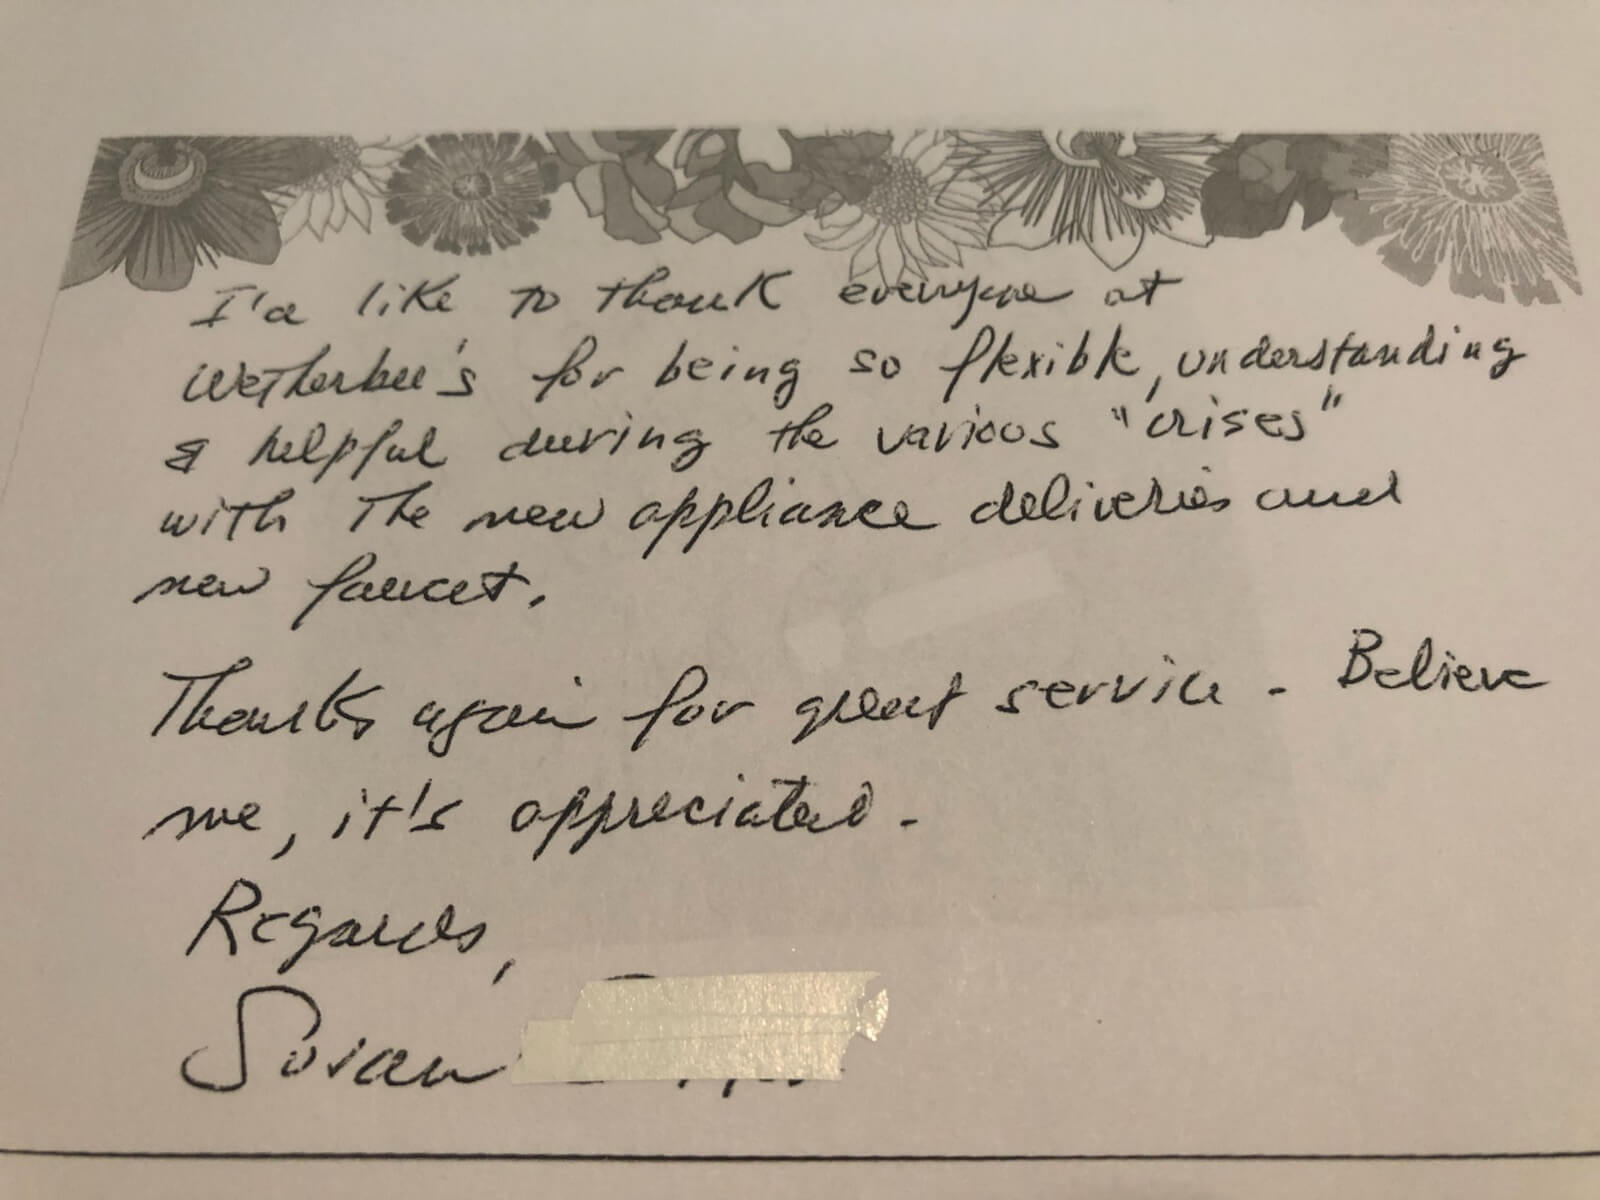 I'd like to thank everyone at
Wetherbee's for being so flexible, understanding
& helpful during the various "crises"
with the new appliance deliveries and
new faucet.
Thanks again for great service - Believe
me, it's appreciated.
Regards,
Susan